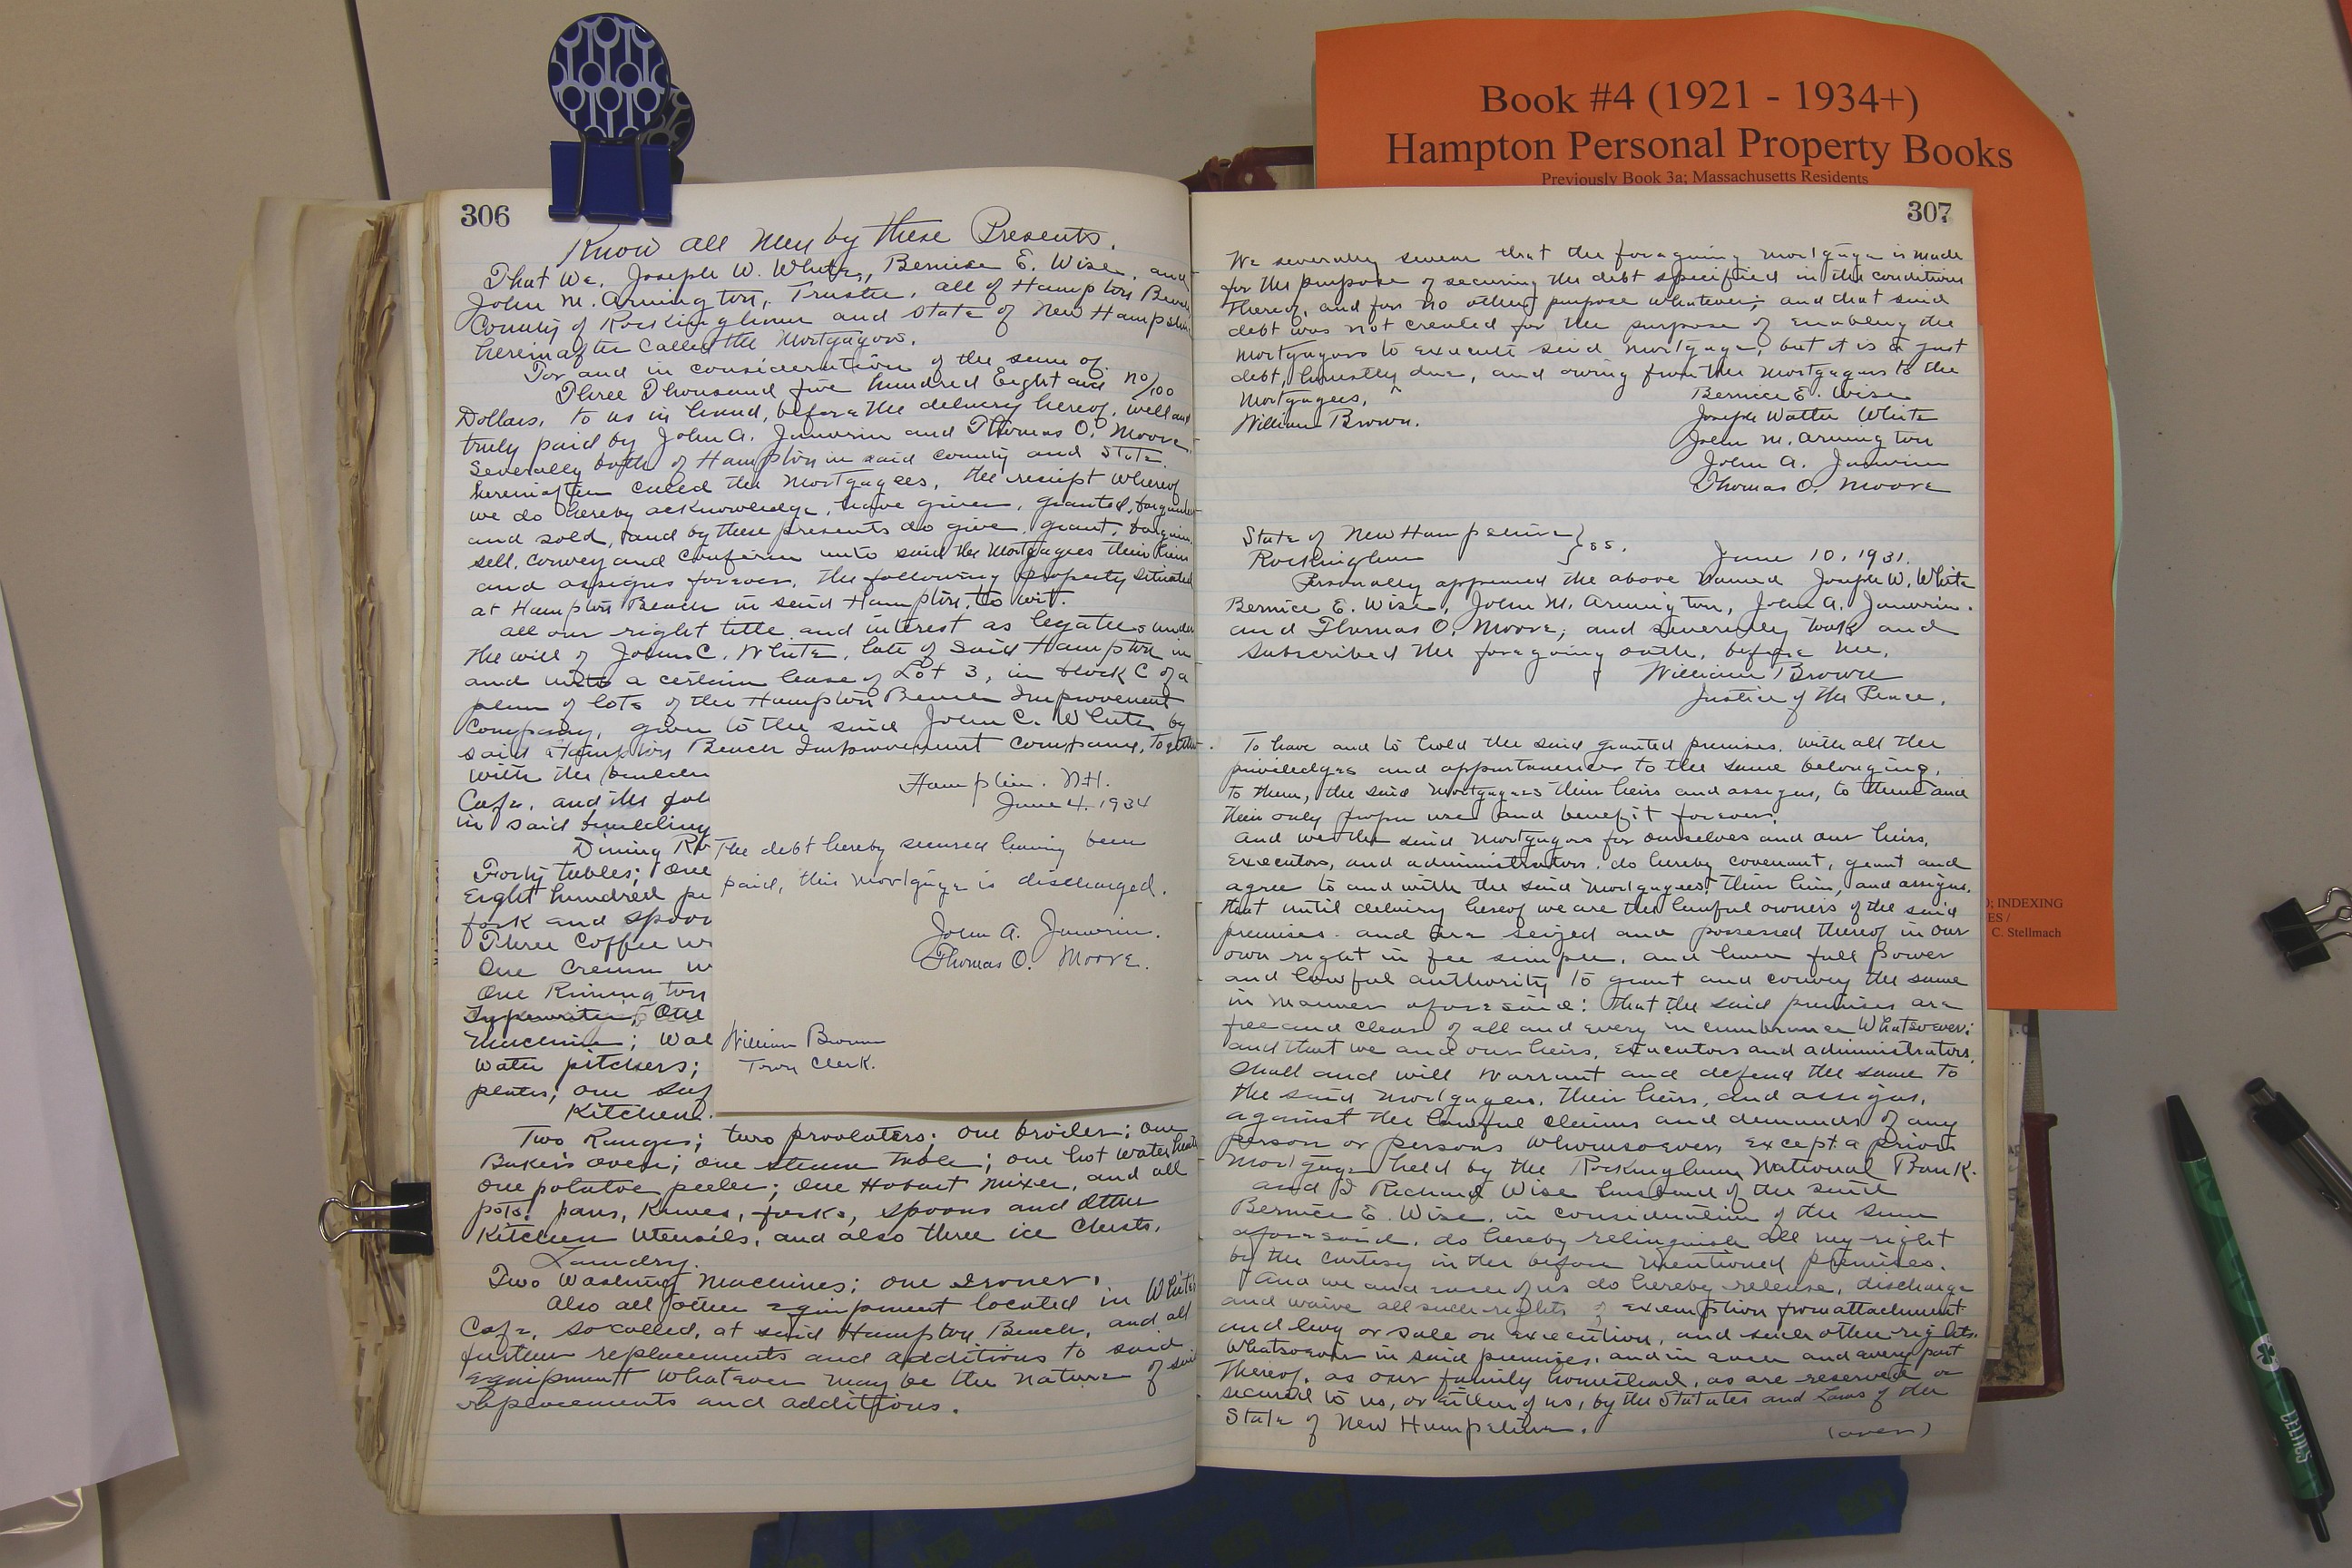 Book #4 (1921 - 1934+)
Hampton Personal Property Books
Previously Book 3a; Massachusetts Residents
; INDEXING
ES /
C. Stellmach
306
Know all Men by these Presents.
That We, Joseph W. White, Bernice E. Wise, and
John M. Armington, Trustee, all of Hampton Beach
County of Rockingham and State of New Hampshire
hereinafter called the Mortgagors.
For and in consideration of the sum of
Three Thousand five hundred Eight and no/100
Dollars, to us in hand, before the delivery hereof, well and
truly paid by John A. Janvrin and Thomas O. Moore
Severally both of Hampton in said county and State
hereinafter called the Mortgagees, the receipt whereof
we do hereby acknowledge, have given, granted, bargained
and sold, and by these presents do give, grant, bargain,
sell, convey and confirm unto said the Mortgagees their heirs
and assigns forever, the following property situated
at Hampton Beach in said Hampton, to wit.
all our right title and interest as legatees under
the will of John C. White, late of said Hampton in
and unto a certain lease of Lot 3, in block C of a
plan of lots of the Hampton Beach Improvement
Company, given to the said John C. White by
said Hampton Beach Improvement Company, Together
with the
Cafe, and the fol
in said building
Dining Ro
Forty tables; One
Eight hundred pi
fork and spoon
Three Coffee
One Cream
One Rimington
Typewriter; One
Machine; Wal
Water pitchers;
plates; one
Kitchen.
Two Ranges; two broilers; one
Bakers oven; one steam table; one hot water
one potatoe peeler; one Hobart mixer, and all
pots, pans, Knives, forks, spoons and other
Kitchen Utensils, and also three ice chests.
Laundry.
Two Washing Machines; one Ironer.
Also all other equipment located in White's
Cafe, so called, at said Hampton Beach, and all
further replacements and additions to said
equipment whatever may be the nature of said
replacements and additions.
Hampton. N.H.
June 4. 1934
The debt hereby secured having been
paid, this mortgage is discharged.
John A. Janvrin.
Thomas O. Moore.
William Brown
Town Clerk.
307
We severally swear that the foregoing mortgage is made
for the purpose of securing the debt specified in the conditions
thereof, and for no other purpose whatever, and that said
debt was not created for the purpose of enabling the
Mortgagors to execute said mortgage, but it is a just
debt, honestly due, and owing from the Mortgagors to the
Mortgagees.
William Brown.
Bernice E. Wise
Joseph Walter White
John M. Armington
John A. Janvrin
Thomas O. Moore
State of New Hampshire } ss.
Rockingham
June 10, 1931.
Personally appeared the above named Joseph W. White
Bernice E. Wise, John M. Armington, John A. Janvrin.
and Thomas O. Moore, and severally took and
subscribed the foregoing oath, before me,
William Brown
Justice of the Peace.
To have and to hold the said granted premises, with all the
priviledges and appurtanences to the same belonging,
to them, the said Mortgagees their heirs and assigns, to them and
their only proper use and benefit forever.
And we the said Mortgagors for ourselves and our heirs,
Executors, and administrators, do hereby covenant, grant and
agree to and with the said Mortgagees, their heirs, and assigns,
that until delivery hereof we are the lawful owners of the said
premises, and are seized and possessed thereof in our
own right in fee simple, and have full power
and lawful authority to grant and convey the same
in manner aforesaid: that the said premises are
free and clear of all and every incumbrance whatsoever;
and that we and our heirs, executors and administrators,
shall and will warrant and defend the same to
the said Mortgagees, their heirs, and assigns,
against the lawful claims and demands of any
person or persons whomsoever, except a prior
Mortgage held by the Rockingham National Bank.
and I Richard Wise husband of the said
Bernice E. Wise, in consideration of the sum
aforesaid, do hereby relinguish all my right
by the curtesy in the before mentioned premises.
And we and each of us do hereby release, discharge
and waive all such rights of exemption from attachment
and levy or sale on execution, and such other rights
whatsoever in said premises, and in each and every part
thereof, as our family homestead, as are reserved or
secured to us, or either of us, by the Statutes and Laws of the
State of New Hampshire.
(over)
CELTICS